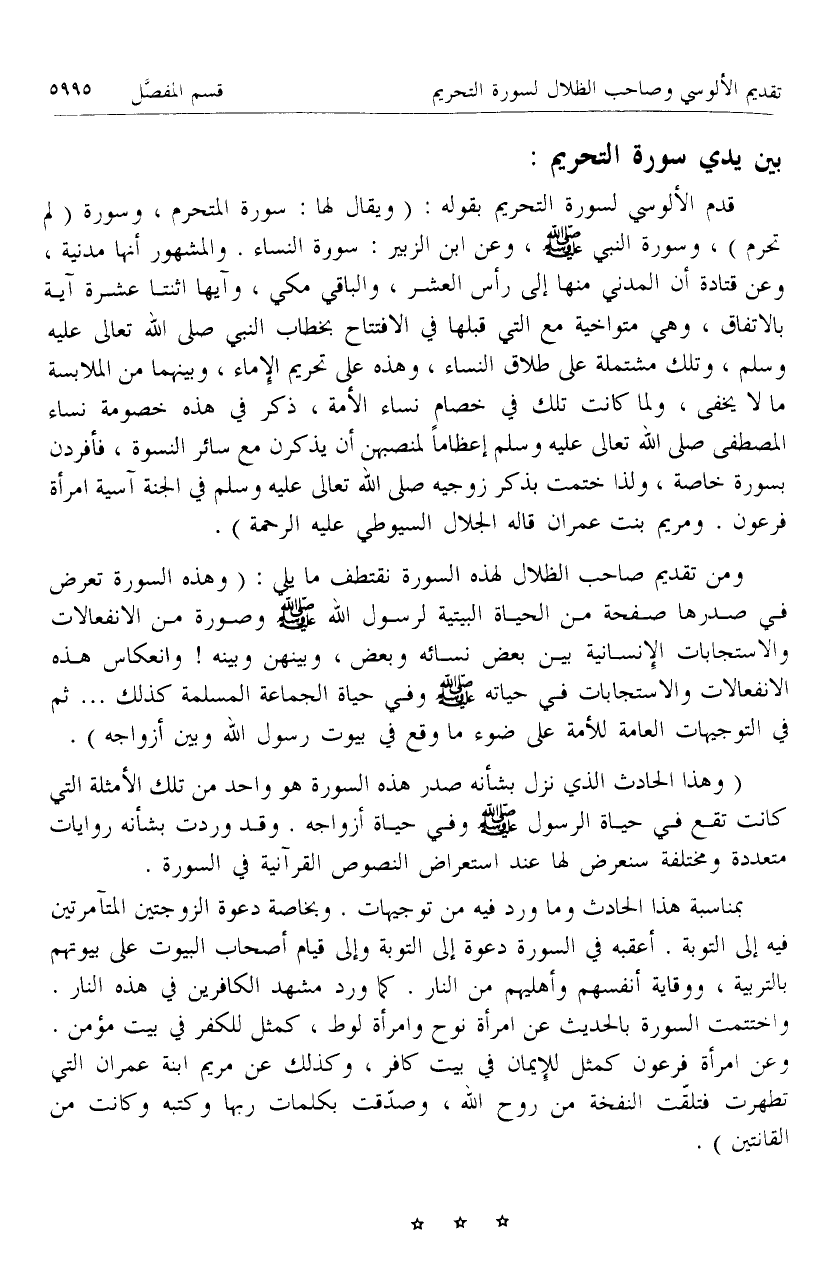 تقديم الألوسي وصاحب الظلال لسورة التحريم قسم المفصَّل ٥٩٩٥
بين يدي سورة التحريم :
قدم الألوسي لسورة التحريم بقوله : ( ويقال لها : سورة المتحرم ، وسورة ( لم
تحرم ) ، وسورة النبي ﷺ ، وعن ابن الزبير : سورة النساء . والمشهور أنها مدنية ،
وعن قتادة أن المدني منها إلى رأس العشر ، والباقي مكي ، وآيها اثنتا عشرة آية
بالاتفاق ، وهي متواخية مع التي قبلها في الافتتاح بخطاب النبي صلى الله تعالى عليه
وسلم ، وتلك مشتملة على طلاق النساء ، وهذه على تحريم الإماء ، وبينهما من الملابسة
ما لا يخفى ، ولما كانت تلك في خصام نساء الأمة ، ذكر في هذه خصومة نساء
المصطفى صلى الله تعالى عليه وسلم إعظاماً لمنصبهن أن يذكرن مع سائر النسوة ، فأفردن
بسورة خاصة ، ولذا ختمت بذكر زوجيه صلى الله تعالى عليه وسلم في الجنة آسية امرأة
فرعون . ومريم بنت عمران قاله الجلال السيوطي عليه الرحمة ) .
ومن تقديم صاحب الظلال لهذه السورة نقتطف ما يلي : ( وهذه السورة تعرض
في صدرها صفحة من الحياة البيتية لرسول الله ﷺ وصورة من الانفعالات
والاستجابات الإنسانية بين بعض نسائه وبعض ، وبينهن وبينه ! وانعكاس هذه
الانفعالات والاستجابات في حياته ﷺ وفي حياة الجماعة المسلمة كذلك ... ثم
في التوجيهات العامة للأمة على ضوء ما وقع في بيوت رسول الله وبين أزواجه ) .
( وهذا الحادث الذي نزل بشأنه صدر هذه السورة هو واحد من تلك الأمثلة التي
كانت تقع في حياة الرسول ﷺ وفي حياة أزواجه . وقد وردت بشأنه روايات
متعددة ومختلفة سنعرض لها عند استعراض النصوص القرآنية في السورة .
بمناسبة هذا الحادث وما ورد فيه من توجيهات . وبخاصة دعوة الزوجتين المتآمرتين
فيه إلى التوبة . أعقبه في السورة دعوة إلى التوبة وإلى قيام أصحاب البيوت على بيوتهم
بالتربية ، ووقاية أنفسهم وأهليهم من النار . كما ورد مشهد الكافرين في هذه النار .
واختتمت السورة بالحديث عن امرأة نوح وامرأة لوط ، كمثل للكفر في بيت مؤمن .
وعن امرأة فرعون كمثل للإيمان في بيت كافر ، وكذلك عن مريم ابنة عمران التي
تطهرت فتلقّت النفخة من روح الله ، وصدّقت بكلمات ربها وكتبه وكانت من
القانتين ) .
☆ ☆ ☆